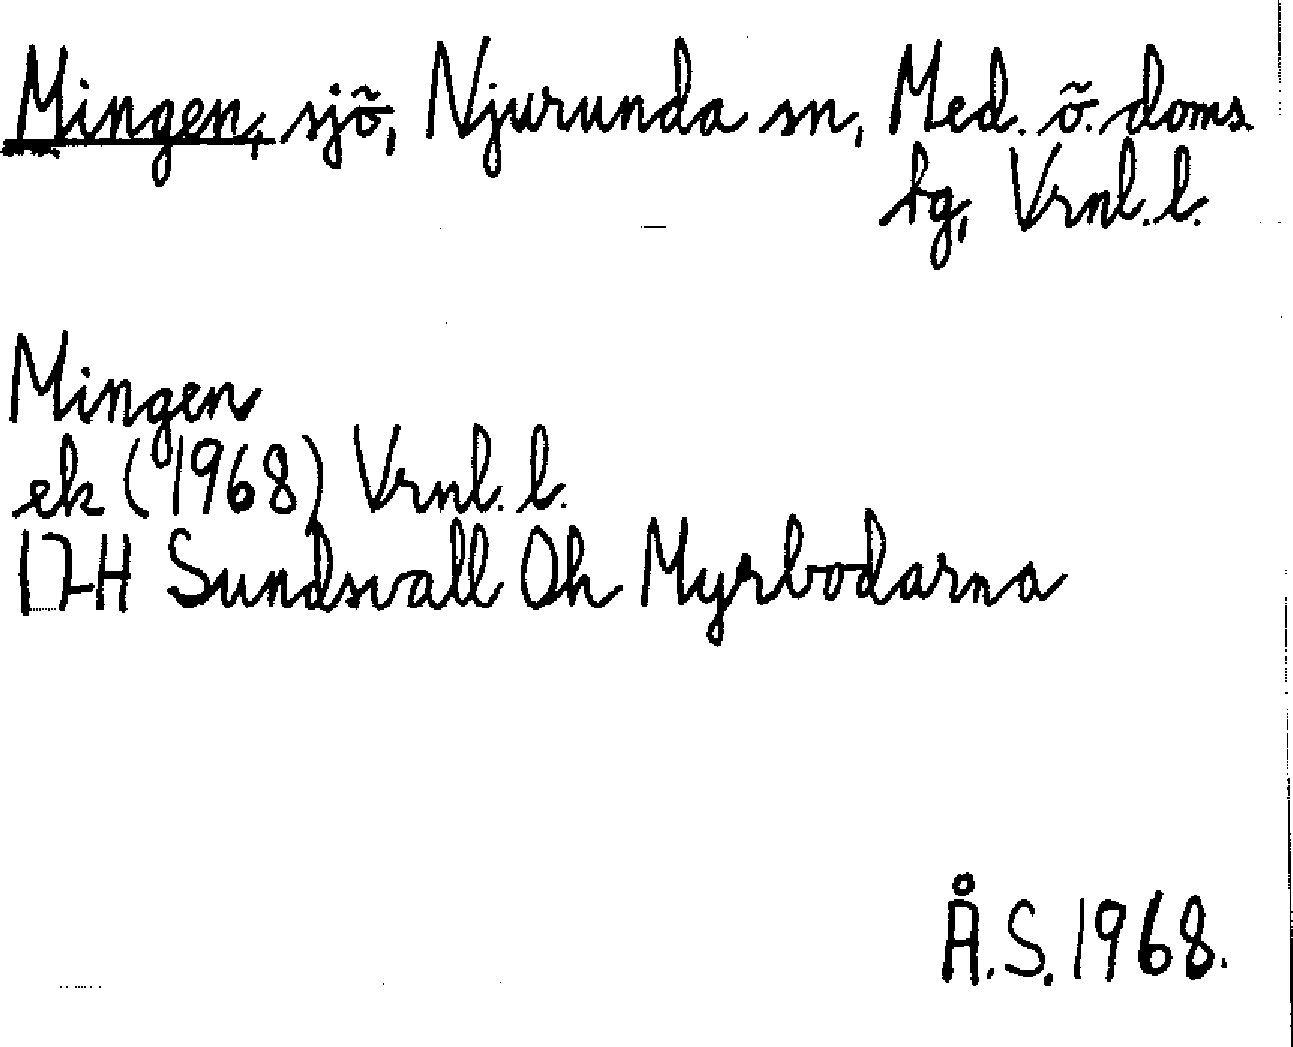 Mingen, sjö, Njurunda sn, Med. ö. doms.
hg, Vrnl. l.
Mingen
ek (1968) Vrnl. l.
17H Sundsvall Oh Myrbodarna
Å.S. 1968.